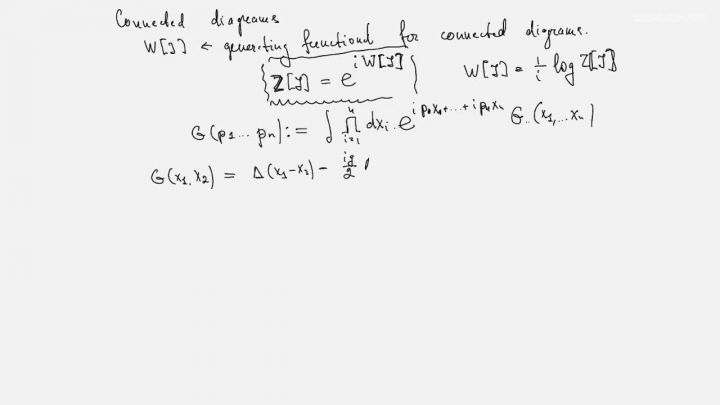 Connected diagrams
W[J] ← generating functional for connected digrams.
Z[J] = e^{iW[J]} W[J] = \frac{1}{i} log Z[J]
G(p_1 ... p_n) := ∫ ∏_{i=1}^{n} dx_i e^{i p_1 x_1 + ... + i p_n x_n} G(x_1, ... x_n)
G(x_1, x_2) = Δ(x_1 - x_2) - \frac{ig}{2}